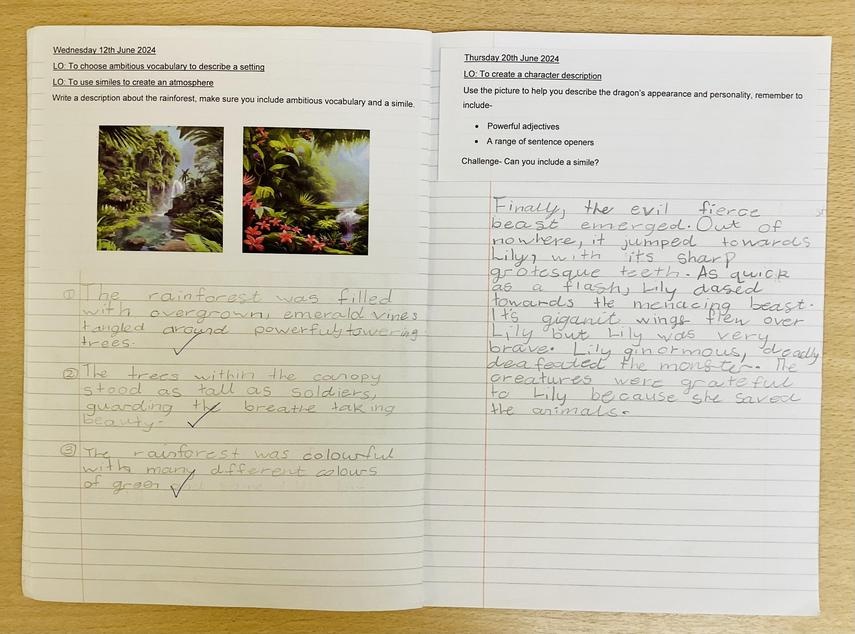 Wednesday 12th June 2024
LO: To choose ambitious vocabulary to describe a setting
LO: To use similes to create an atmosphere
Write a description about the rainforest, make sure you include ambitious vocabulary and a simile.
① The rainforest was filled
with overgrown, emerald vines
tangled around powerful, towering
trees.
② The trees within the canopy
stood as tall as soldiers,
guarding the breathe taking
beauty.
③ The rainforest was colourful
with many different colours
of green
Thursday 20th June 2024
LO: To create a character description
Use the picture to help you describe the dragon's appearance and personality, remember to
include-
• Powerful adjectives
• A range of sentence openers
Challenge- Can you include a simile?
Finally, the evil fierce
beast emerged. Out of
nowhere, it jumped towards
Lily, with its sharp
grotesque teeth. As quick
as a flash, Lily dased
towards the menacing beast.
It's giganit wings flew over
Lily but Lily was very
brave. Lily ginormous, deadly
deafeated the monster. The
creatures were grateful
to Lily because she saved
the animals.